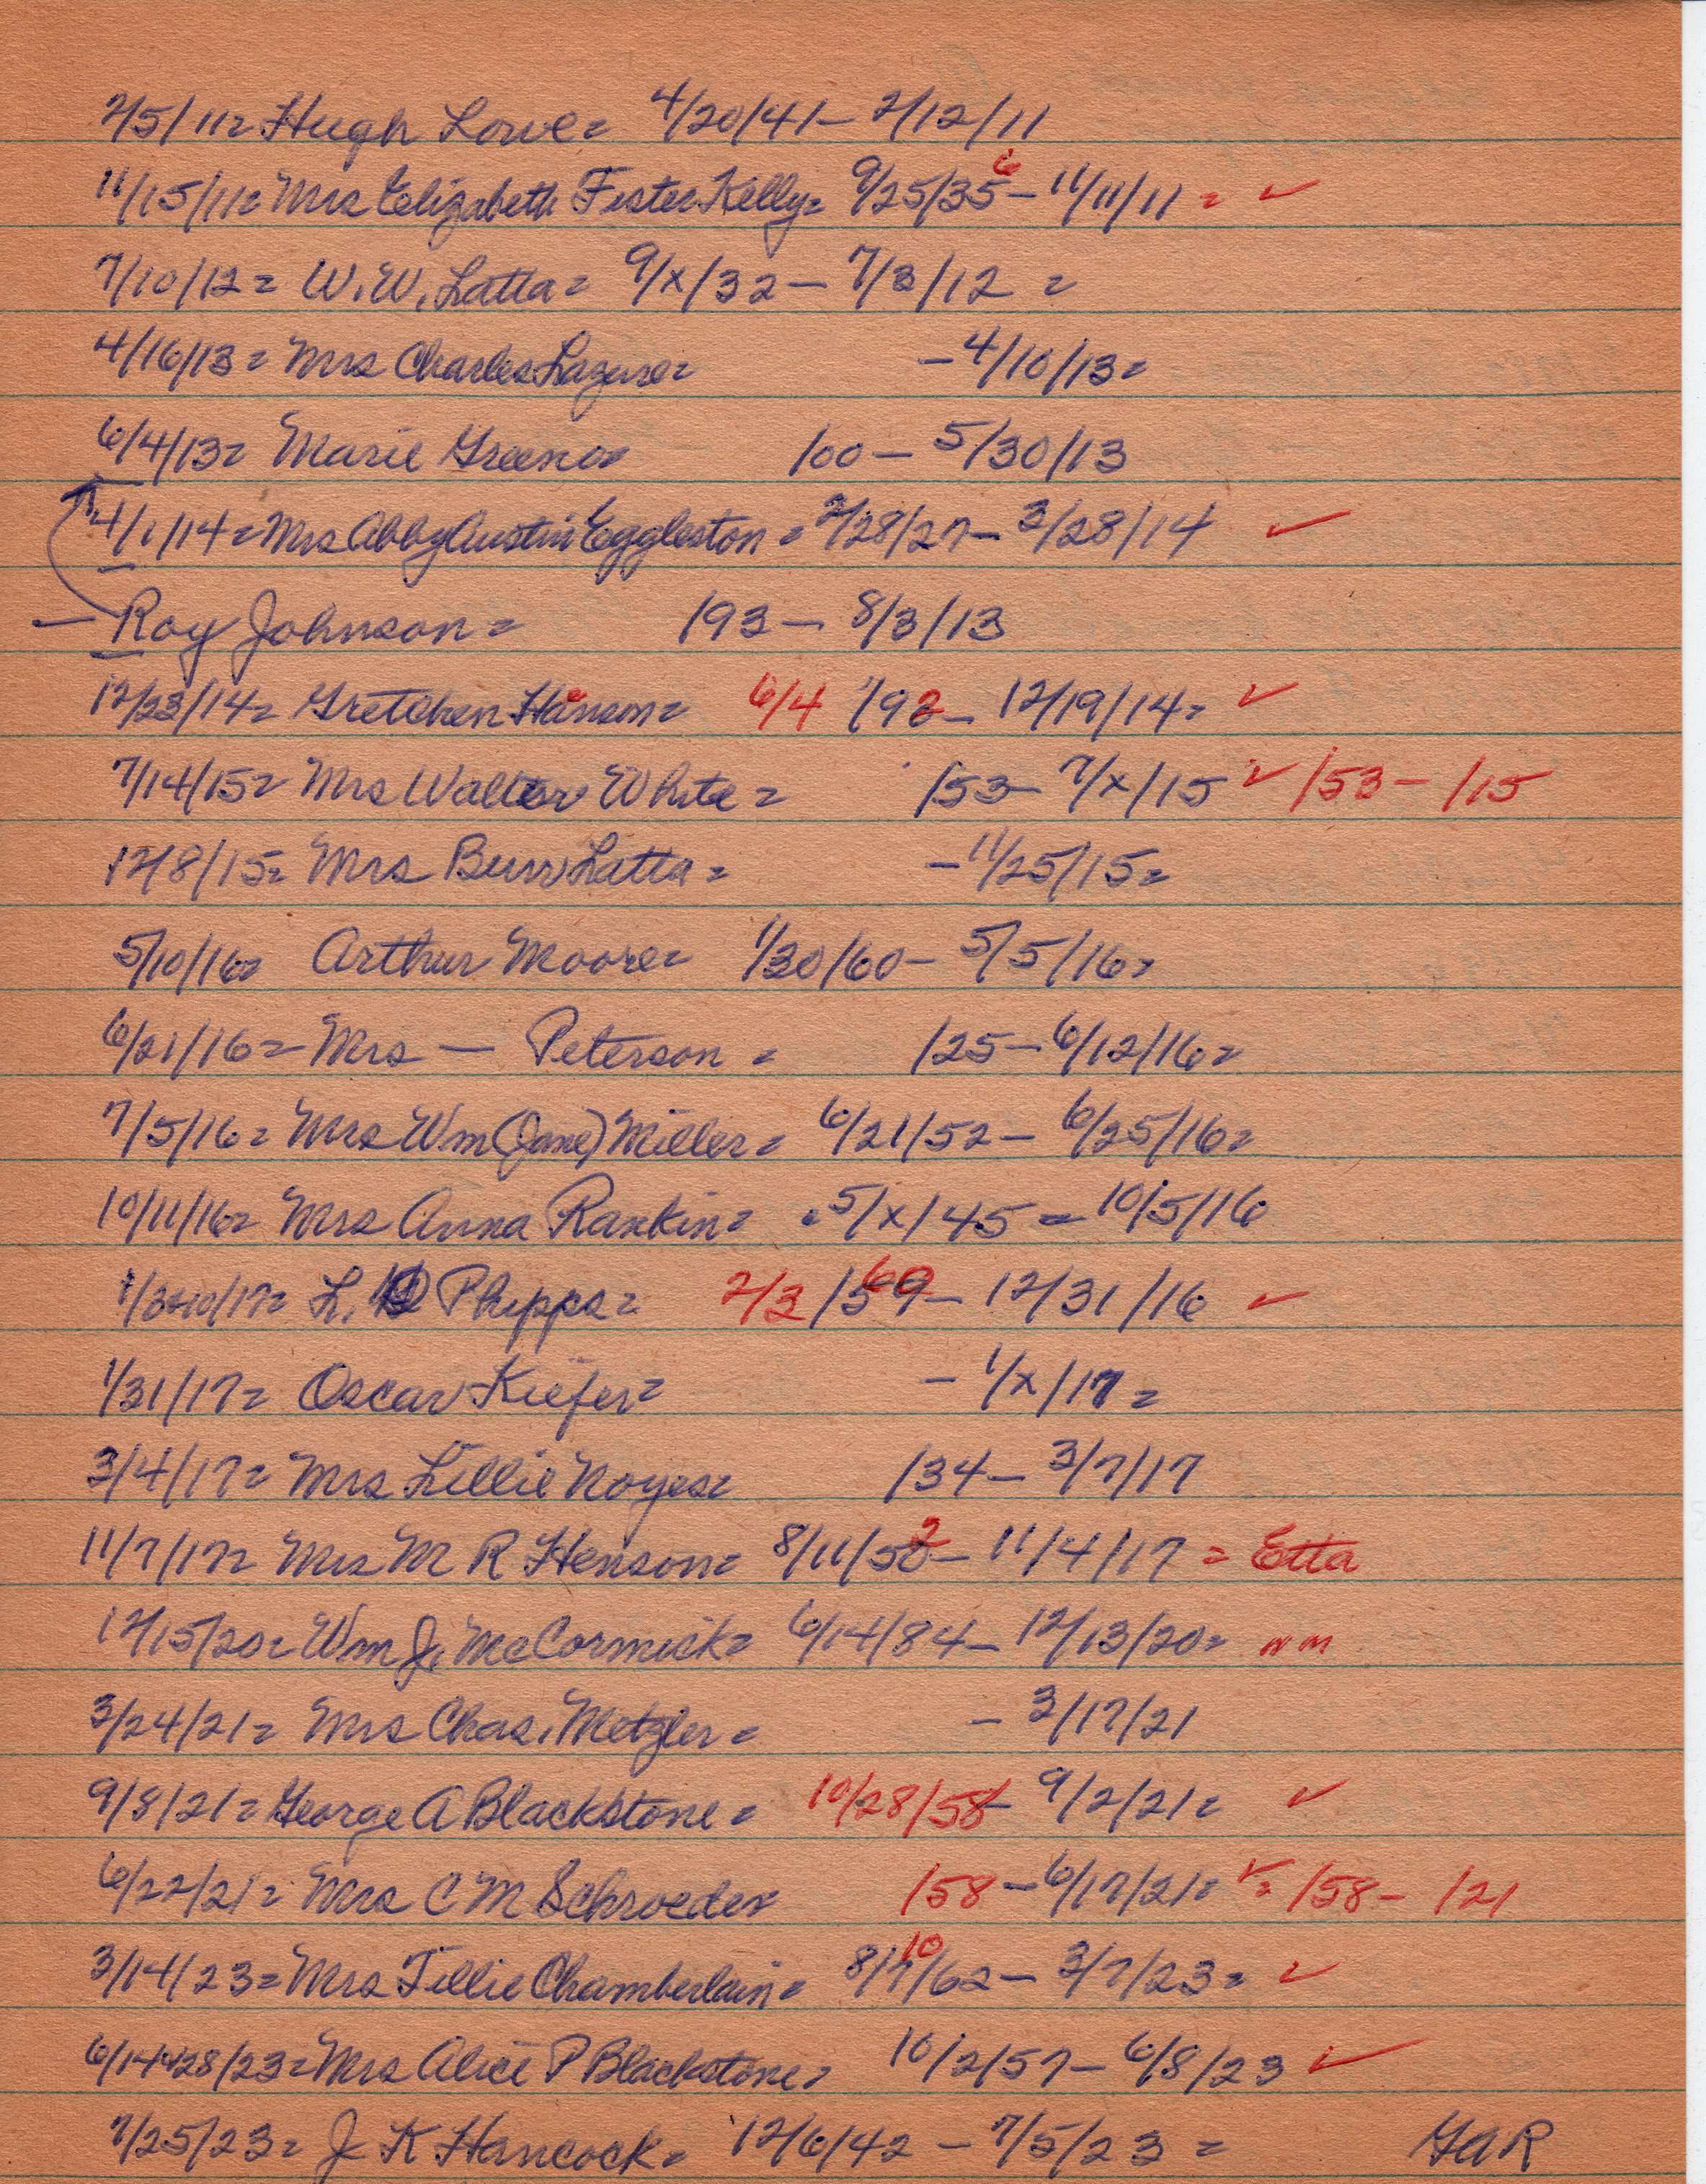 2/5/11= Hugh Lowe= 4/20/41- 2/12/11
11/15/11= Mrs Elizabeth Fister Kelly= 9/25/35 6 - 11/11/11 = ✓
7/10/12= W.W. Latta= 9/x/32 - 7/3/12 =
4/16/13= Mrs Charles Lazure= - 4/10/13=
6/4/13= Marie Greeno= /00 - 5/30/13
4/1/14= Mrs Abby Austin Eggleston = 2/28/27- 3/28/14 ✓
- Roy Johnson = /93 - 8/3/13
12/23/14= Gretchen Hanson= 6/4 /92- 12/19/14= ✓
7/14/15= Mrs Walter White = /53- 7/x/15 ✓ /53- /15
12/8/15= Mrs Burr Latta = - 11/25/15=
5/10/16= Arthur Moore= 1/30/60- 5/5/16=
6/21/16= Mrs — Peterson = /25- 6/12/16=
7/5/16= Mrs Wm (Jane) Miller= 6/21/52- 6/25/16=
10/11/16= Mrs Anna Rankin= 5/x/45 = 10/5/16
1/3+10/17= L. D Phipps= 2/3 /59 60 - 12/31/16 ✓
1/31/17= Oscar Kiefer= - 1/x/17 =
3/4/17= Mrs Lillie Noyes= /34- 3/7/17
11/7/17= Mrs M R Henson= 8/11/50 2 - 11/4/17 = Etta
12/15/20= Wm J. McCormick= 6/14/84- 12/13/20= nm
3/24/21= Mrs Chas. Metzler= - 3/17/21
9/8/21= George A Blackstone= 10/28/58- 9/2/21= ✓
6/22/21= Mrs C M Schroeder /58 - 6/17/21= ✓= /58- /21
3/14/23= Mrs Tillie Chamberlain= 8/ 10 /62- 3/7/23= ✓
6/14+28/23= Mrs Alice P Blackstone= 10/2/57- 6/8/23 ✓
7/25/23= J K Hancock= 12/6/42 - 7/5/23 = GAR